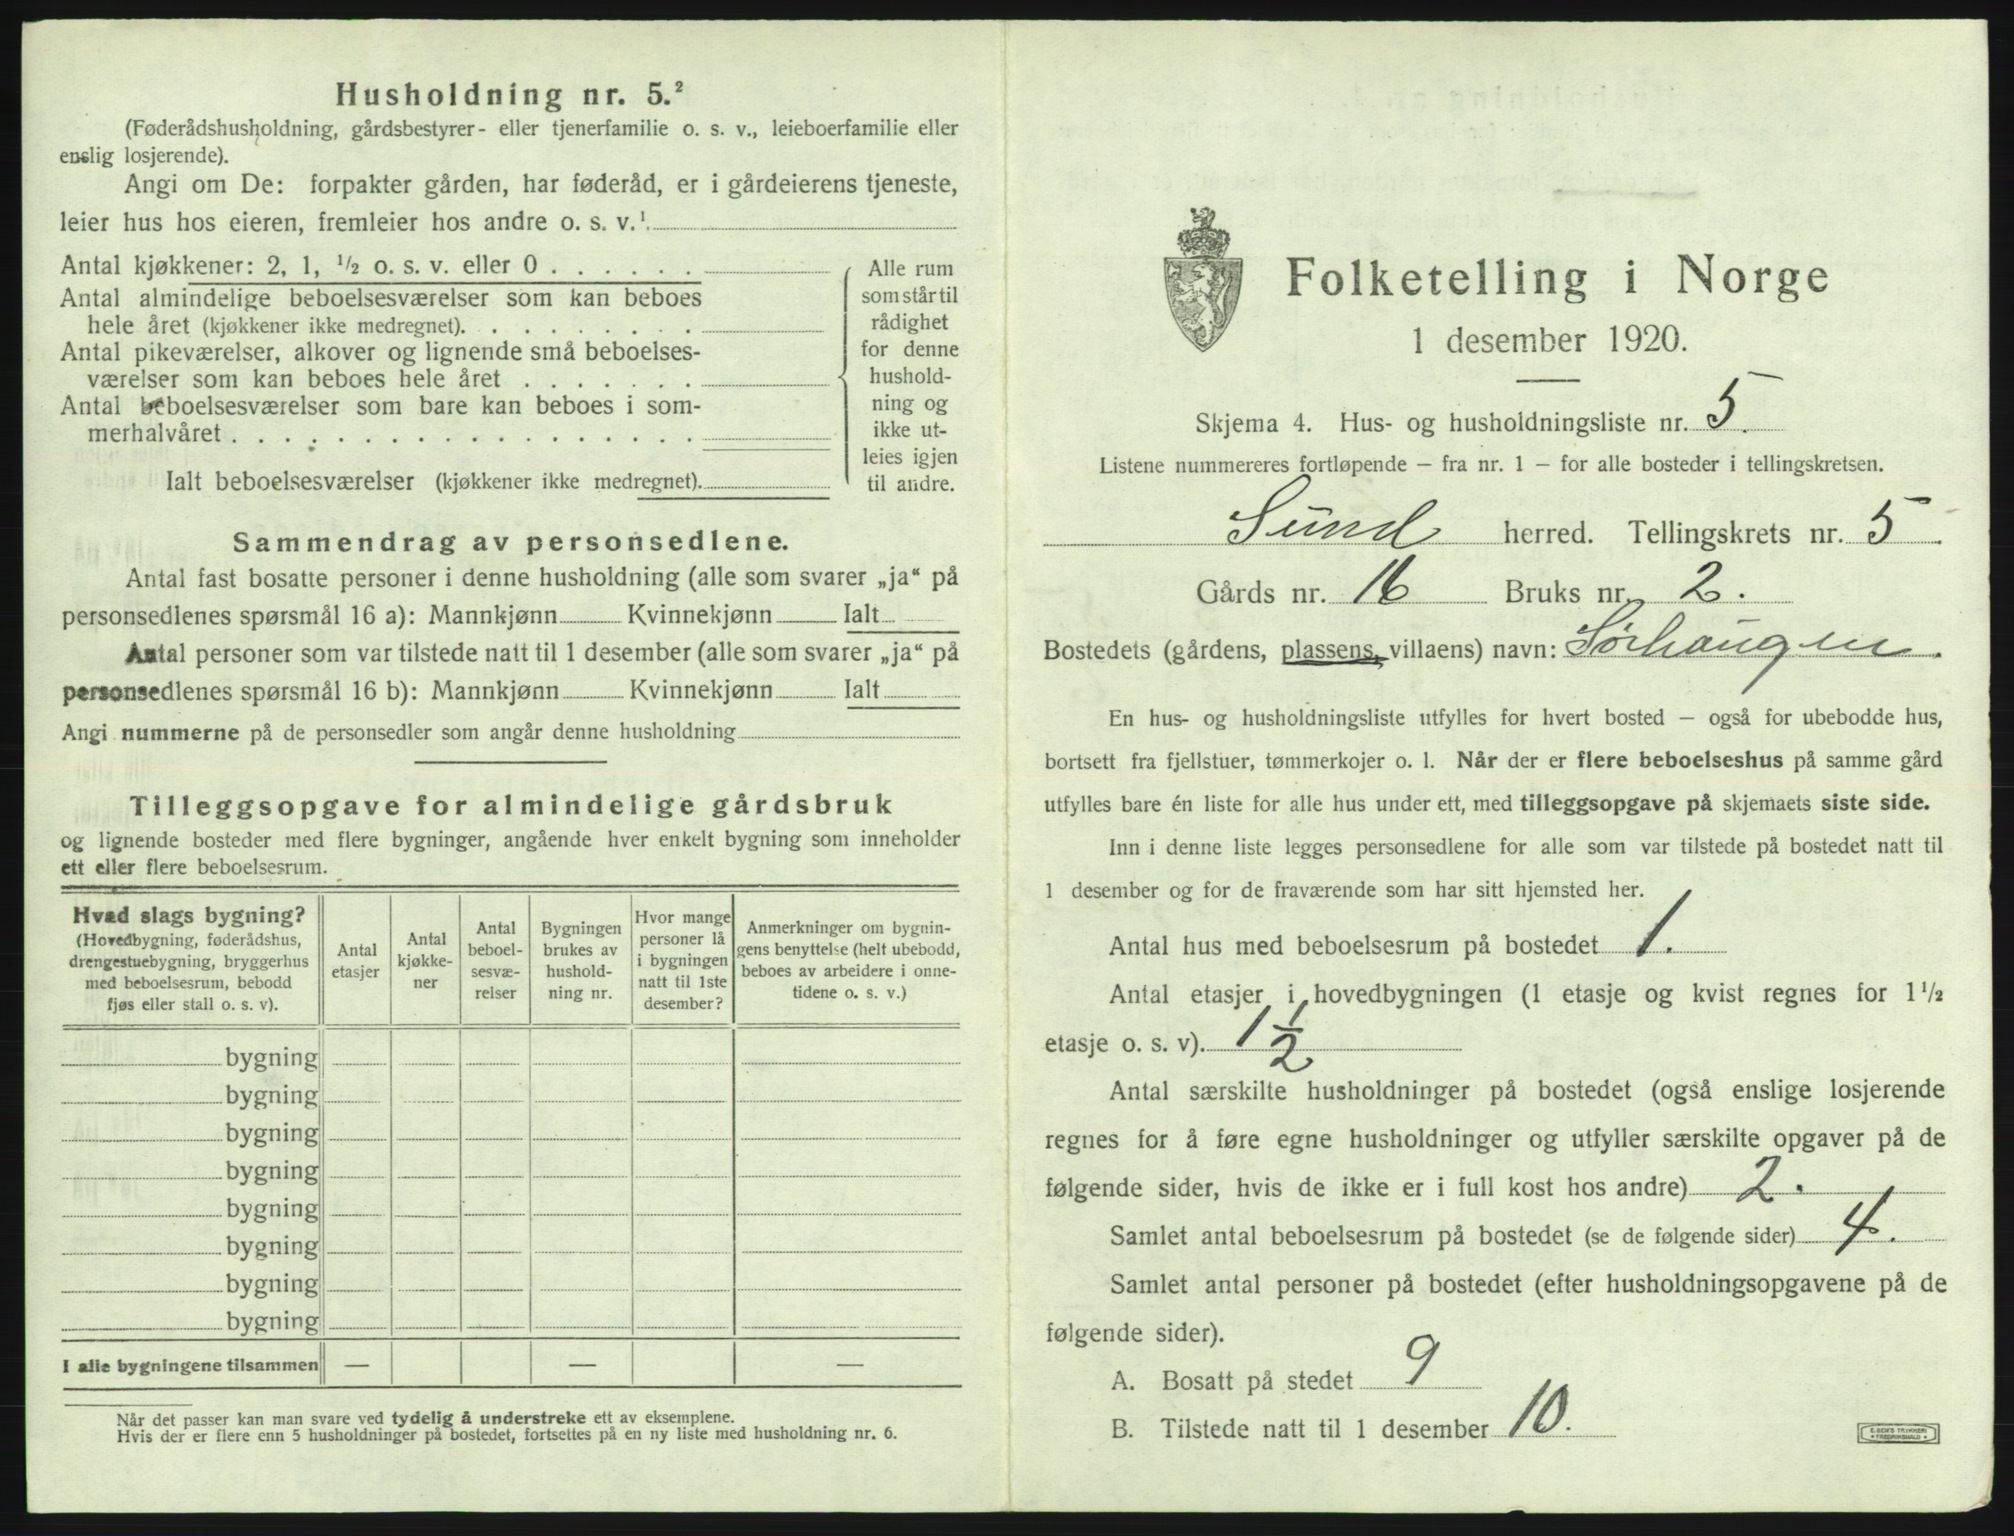 Husholdning nr. 5.²
(Føderådshusholdning, gårdsbestyrer- eller tjenerfamilie o. s. v., leieboerfamilie eller
enslig losjerende).
Angi om De: forpakter gården, har føderåd, er i gårdeierens tjeneste,
leier hus hos eieren, fremleier hos andre o. s. v.¹
Antal kjøkkener: 2, 1, ½ o. s. v. eller 0 . . . . . .
Antal almindelige beboelsesværelser som kan beboes
hele året (kjøkkener ikke medregnet). . . . . . . . .
Antal pikeværelser, alkover og lignende små beboelses-
værelser som kan beboes hele året . . . . . . .
Antal beboelsesværelser som bare kan beboes i som-
merhalvåret . . . . . . . . . . . . . . . . . .
Ialt beboelsesværelser (kjøkkener ikke medregnet).
Alle rum
som står til
rådighet
for denne
hushold-
ning og
ikke ut-
leies igjen
til andre.
Sammendrag av personsedlene.
Antal fast bosatte personer i denne husholdning (alle som svarer „ja“ på
personsedlenes spørsmål 16 a): Mannkjønn Kvinnekjønn Ialt
Antal personer som var tilstede natt til 1 desember (alle som svarer „ja“ på
personsedlenes spørsmål 16 b): Mannkjønn Kvinnekjønn Ialt
Angi nummerne på de personsedler som angår denne husholdning
Tilleggsopgave for almindelige gårdsbruk
og lignende bosteder med flere bygninger, angående hver enkelt bygning som inneholder
ett eller flere beboelsesrum.
Hvad slags bygning?
(Hovedbygning, føderådshus,
drengestuebygning, bryggerhus
med beboelsesrum, bebodd
fjøs eller stall o. s. v).
Antal
etasjer
Antal
kjøkke-
ner
Antal
beboel-
sesvæ-
relser
Bygningen
brukes av
hushold-
ning nr.
Hvor mange
personer lå
i bygningen
natt til 1ste
desember?
Anmerkninger om bygnin-
gens benyttelse (helt ubebodd,
beboes av arbeidere i onne-
tidene o. s. v.)
bygning
bygning
bygning
bygning
bygning
bygning
bygning
bygning
I alle bygningene tilsammen — — —
Når det passer kan man svare ved tydelig å understreke ett av eksemplene.
Hvis der er flere enn 5 husholdninger på bostedet, fortsettes på en ny liste med husholdning nr. 6.
Folketelling i Norge
1 desember 1920.
Skjema 4. Hus- og husholdningsliste nr. 5.
Listene nummereres fortløpende – fra nr. 1 – for alle bosteder i tellingskretsen.
Sund herred. Tellingskrets nr. 5.
Gårds nr. 16 Bruks nr. 2.
Bostedets (gårdens, plassens, villaens) navn: Sørhaugen.
En hus- og husholdningsliste utfylles for hvert bosted – også for ubebodde hus,
bortsett fra fjellstuer, tømmerkojer o. l. Når der er flere beboelseshus på samme gård
utfylles bare én liste for alle hus under ett, med tilleggsopgave på skjemaets siste side.
Inn i denne liste legges personsedlene for alle som var tilstede på bostedet natt til
1 desember og for de fraværende som har sitt hjemsted her.
Antal hus med beboelsesrum på bostedet 1.
Antal etasjer i hovedbygningen (1 etasje og kvist regnes for 1½
etasje o. s. v). 1 1/2
Antal særskilte husholdninger på bostedet (også enslige losjerende
regnes for å føre egne husholdninger og utfyller særskilte opgaver på de
følgende sider, hvis de ikke er i full kost hos andre) 2.
Samlet antal beboelsesrum på bostedet (se de følgende sider) 4.
Samlet antal personer på bostedet (efter husholdningsopgavene på de
følgende sider).
A. Bosatt på stedet 9
B. Tilstede natt til 1 desember 10.